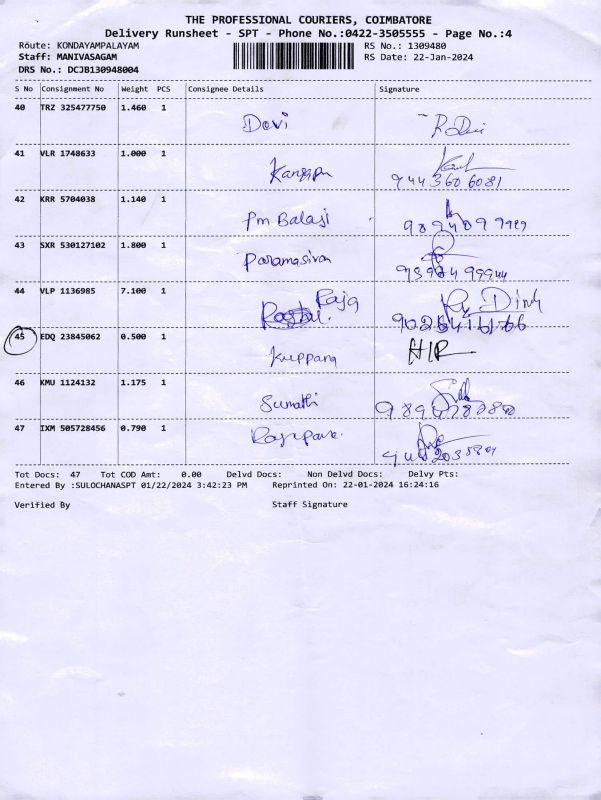 THE PROFESSIONAL COURIERS, COIMBATORE
Delivery Runsheet - SPT - Phone No.:0422-3505555 - Page No.:4
Route: KONDAYAMPALAYAM RS No.: 1309480
Staff: MANIVASAGAM RS Date: 22-Jan-2024
DRS No.: DCJB130948004
S No Consignment No Weight PCS Consignee Details Signature
40 TRZ 325477750 1.460 1 Devi
41 VLR 1748633 1.000 1
944 360 6081
42 KRR 5704038 1.140 1 Pm Balaji
43 SXR 530127102 1.800 1 Paramasivan
44 VLP 1136985 7.100 1 Raja
45 EDQ 23845062 0.500 1 Kuppana
46 KMU 1124132 1.175 1 Sumathi
47 IXM 505728456 0.790 1
Tot Docs: 47 Tot COD Amt: 0.00 Delvd Docs: Non Delvd Docs: Delvy Pts:
Entered By :SULOCHANASPT 01/22/2024 3:42:23 PM Reprinted On: 22-01-2024 16:24:16
Verified By Staff Signature